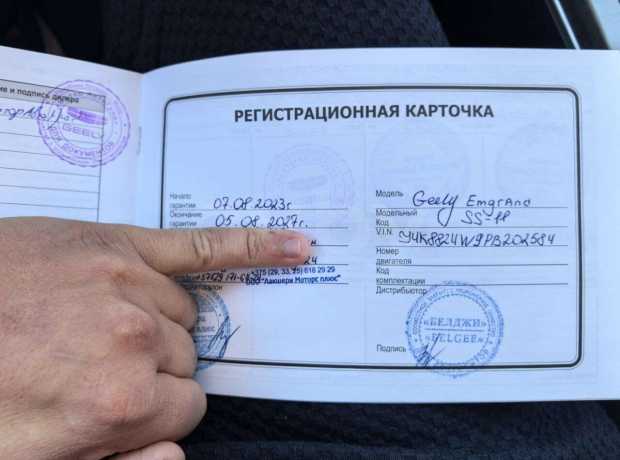 ие и подпись дилера
GEELY
ДЛЯ ДОКУМЕНТОВ
РЕГИСТРАЦИОННАЯ КАРТОЧКА
Начало
гарантии 07.08.2023г
Окончание
гарантии 05.08.2027г.
+375 (29, 33, 25) 616 29 29
ООО "Лакшери Моторс плюс"
Модель Geely Emgrand
Модельный
Код SS-11
V.I.N. Y4K8824W9PB202584
Номер
двигателя
Код
комплектации
Дистрибьютор
«БЕЛДЖИ»
«BELGEE»
Подпись